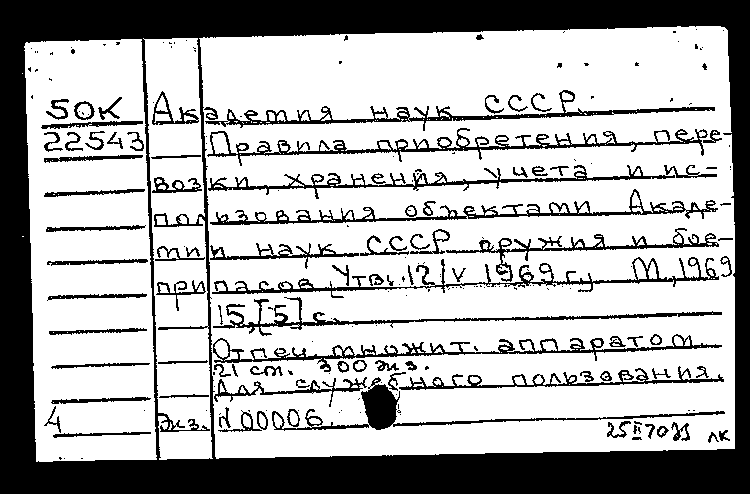 50К Академия наук СССР.
22543 Правила приобретения, пере-
возки, хранения, учета и ис-
пользования объектами Акаде-
мии наук СССР оружия и бое-
припасов. [Утв. 12/V 1969 г.] М., 1969.
15, [5] с.
Отпеч. множит. аппаратом.
21 см. 300 экз.
Для служебного пользования.
4 Экз. № 00006.
25 II 70 лк